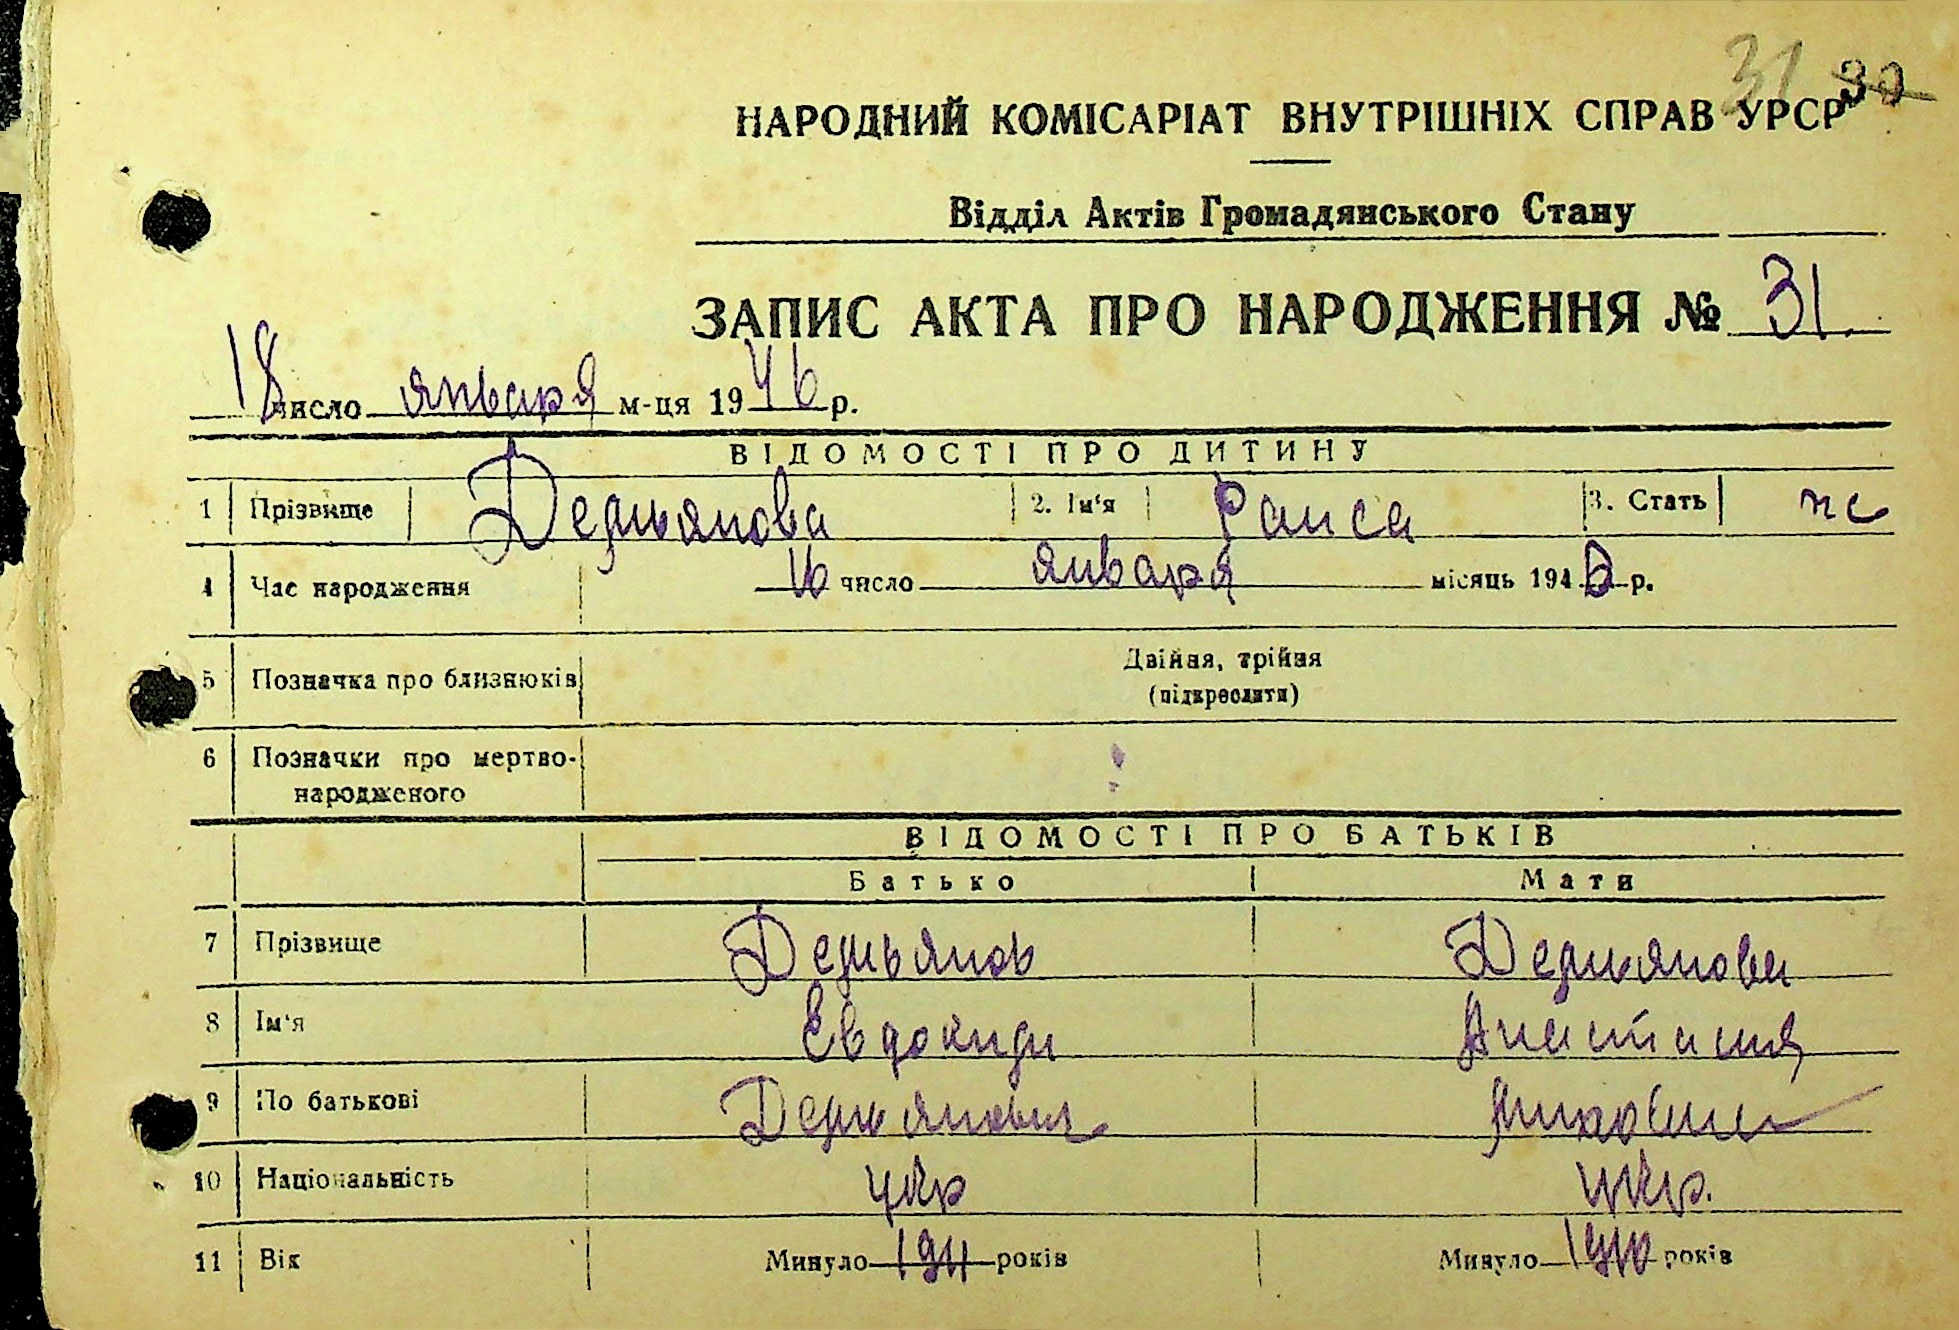 31 30
НАРОДНИЙ КОМІСАРІАТ ВНУТРІШНІХ СПРАВ УРСР
Відділ Актів Громадянського Стану
ЗАПИС АКТА ПРО НАРОДЖЕННЯ № 31.
18 число января м-ця 1946 р.
ВІДОМОСТІ ПРО ДИТИНУ
1 Прізвище Демьянова 2. Ім'я Раиса 3. Стать ж
4 Час народження 16 число января місяць 194 р.
5 Позначка про близнюків Двійня, трійня
(підкреслити)
6 Позначки про мертво-
народженого
ВІДОМОСТІ ПРО БАТЬКІВ
Батько Мати
7 Прізвище Демьянов Демьянова
8 Ім'я Евдоким
9 По батькові Демьянович
10 Національність укр укр.
11 Вік Минуло 1911 років Минуло 1910 років